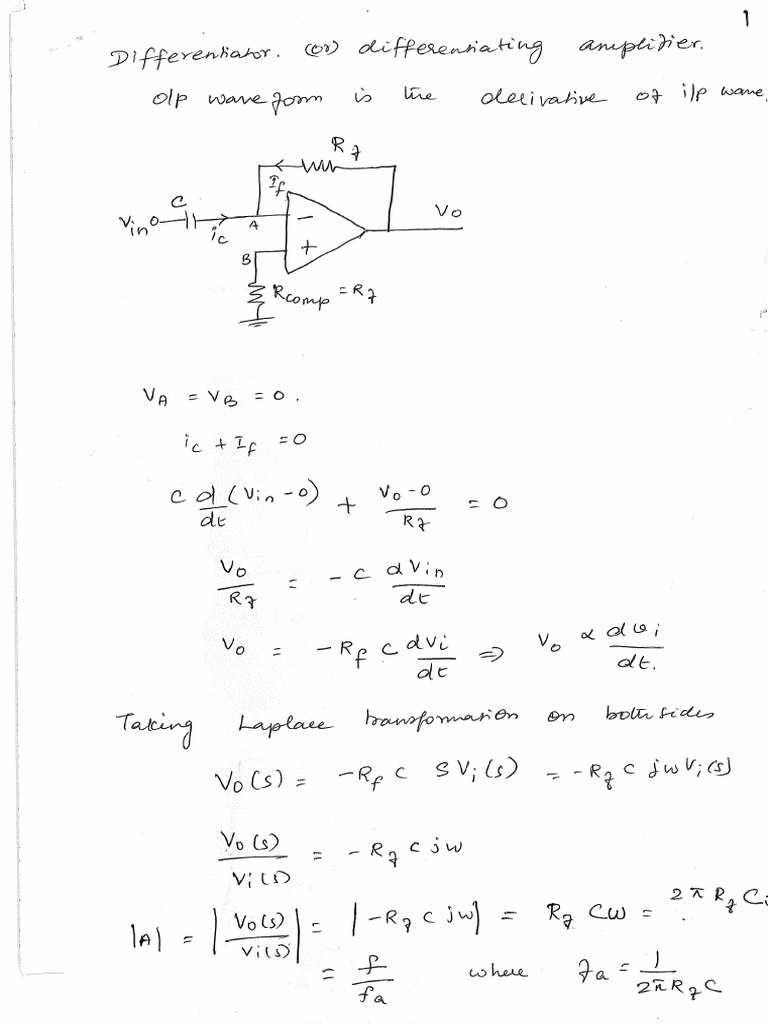 1
Differentiator. (or) differentiating amplifier.
o/p waveform is the derivative of i/p wave.
Rf
If
C
Vin
ic
A
B
−
+
Vo
Rcomp = Rf
VA = VB = 0.
ic + If = 0
C d/dt (Vin - 0) + (Vo - 0)/Rf = 0
Vo/Rf = - C dVin/dt
Vo = - Rf C dVi/dt ⇒ Vo ∝ dVi/dt.
Taking Laplace transformation on both sides
Vo(s) = - Rf C S Vi(s) = - Rf C jw Vi(s)
Vo(s)/Vi(s) = - Rf C jw
|A| = |Vo(s)/Vi(s)| = |- Rf C jw| = Rf Cω = 2π Rf C
= f/fa where fa = 1/2πRfC